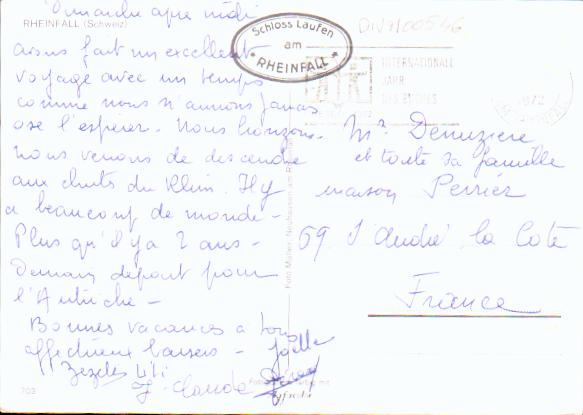 Dimanche après midi
RHEINFALL (Schweiz)
avons fait un excellent
voyage avec un temps
comme nous n'aurions jamais
osé l'espérer. Nous
nous venons de descendre
aux chutes du Rhin. Il y
a beaucoup de monde -
Plus qu'il y a 2 ans -
Demain départ pour
l'Autriche -
Bonnes vacances à tous
affectueux baisers - Joëlle
Lili
J. Claude
703
Schloss Laufen
am
RHEINFALL
DIV9100546
INTERNATIONALES
JAHR
DES BUCHES
1972
Mr Denuziere
et toute sa famille
maison Perrier
69. St André la Cote
France